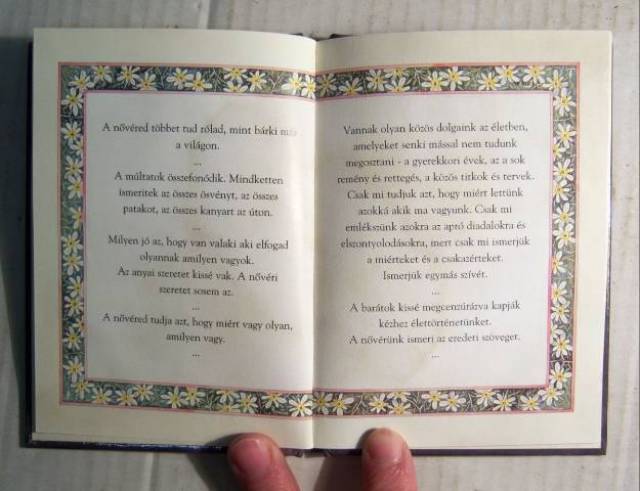 A nővéred többet tud rólad, mint bárki más
a világon.
...
A múltatok összefonódik. Mindketten
ismeritek az összes ösvényt, az összes
patakot, az összes kanyart az úton.
...
Milyen jó az, hogy van valaki aki elfogad
olyannak amilyen vagyok.
Az anyai szeretet kissé vak. A nővéri
szeretet sosem az.
...
A nővéred tudja azt, hogy miért vagy olyan,
amilyen vagy.
...
Vannak olyan közös dolgaink az életben,
amelyeket senki mással nem tudunk
megosztani - a gyerekkori évek, az a sok
remény és rettegés, a közös titkok és tervek.
Csak mi tudjuk azt, hogy miért lettünk
azokká akik ma vagyunk. Csak mi
emlékszünk azokra az apró diadalokra és
elszontyolodásokra, mert csak mi ismerjük
a miérteket és a csakazérteket.
Ismerjük egymás szívét.
...
A barátok kissé megcenzúrázva kapják
kézhez élettörténetünket.
A nővérünk ismeri az eredeti szöveget.
...